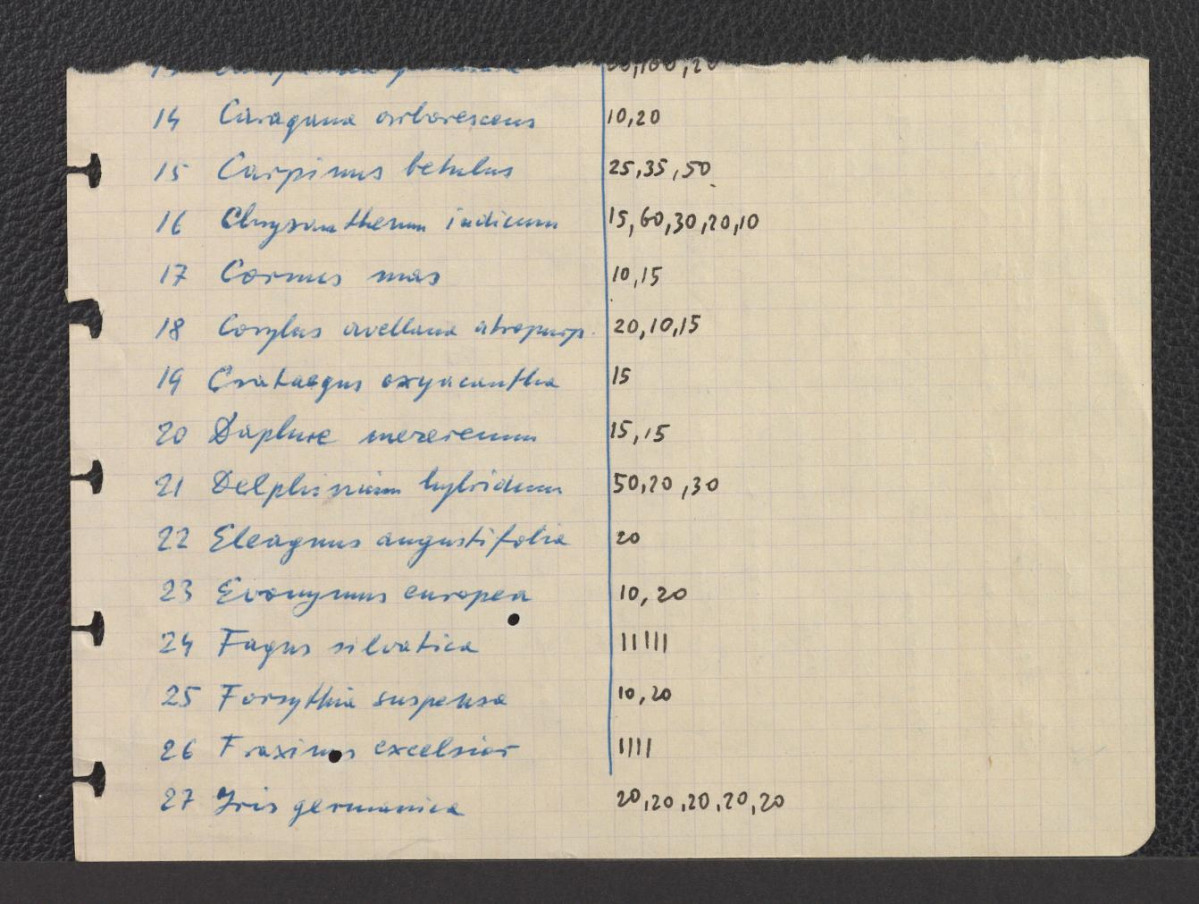 14 Caragana arborescens 10,20
15 Carpinus betulus 25,35,50
16 Chrysanthemum indicum 15,60,30,20,10
17 Cornus mas 10,15
18 Corylus avellana atropurp. 20,10,15
19 Crataegus oxyacantha 15
20 Daphne mezereum 15,15
21 Delphinium hybridum 50,20,30
22 Eleagnus angustifolia 20
23 Evonymus europea 10,20
24 Fagus silvatica IIIIII
25 Forsythia suspensa 10,20
26 Fraxinus excelsior IIII
27 Iris germanica 20,20,20,20,20